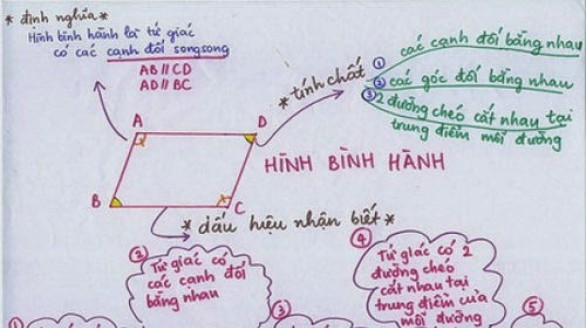 * định nghĩa *
Hình bình hành là tứ giác
có các cạnh đối songsong
AB // CD
AD // BC
* tính chất
① các cạnh đối bằng nhau
② các góc đối bằng nhau
③ 2 đường chéo cắt nhau tại
trung điểm mỗi đường
A
D
B
C
HÌNH BÌNH HÀNH
* dấu hiệu nhận biết *
②
Tứ giác có
các cạnh đối
bằng nhau
④
Tứ giác có 2
đường chéo
cắt nhau tại
trung điểm của
mỗi đường
①
③
⑤